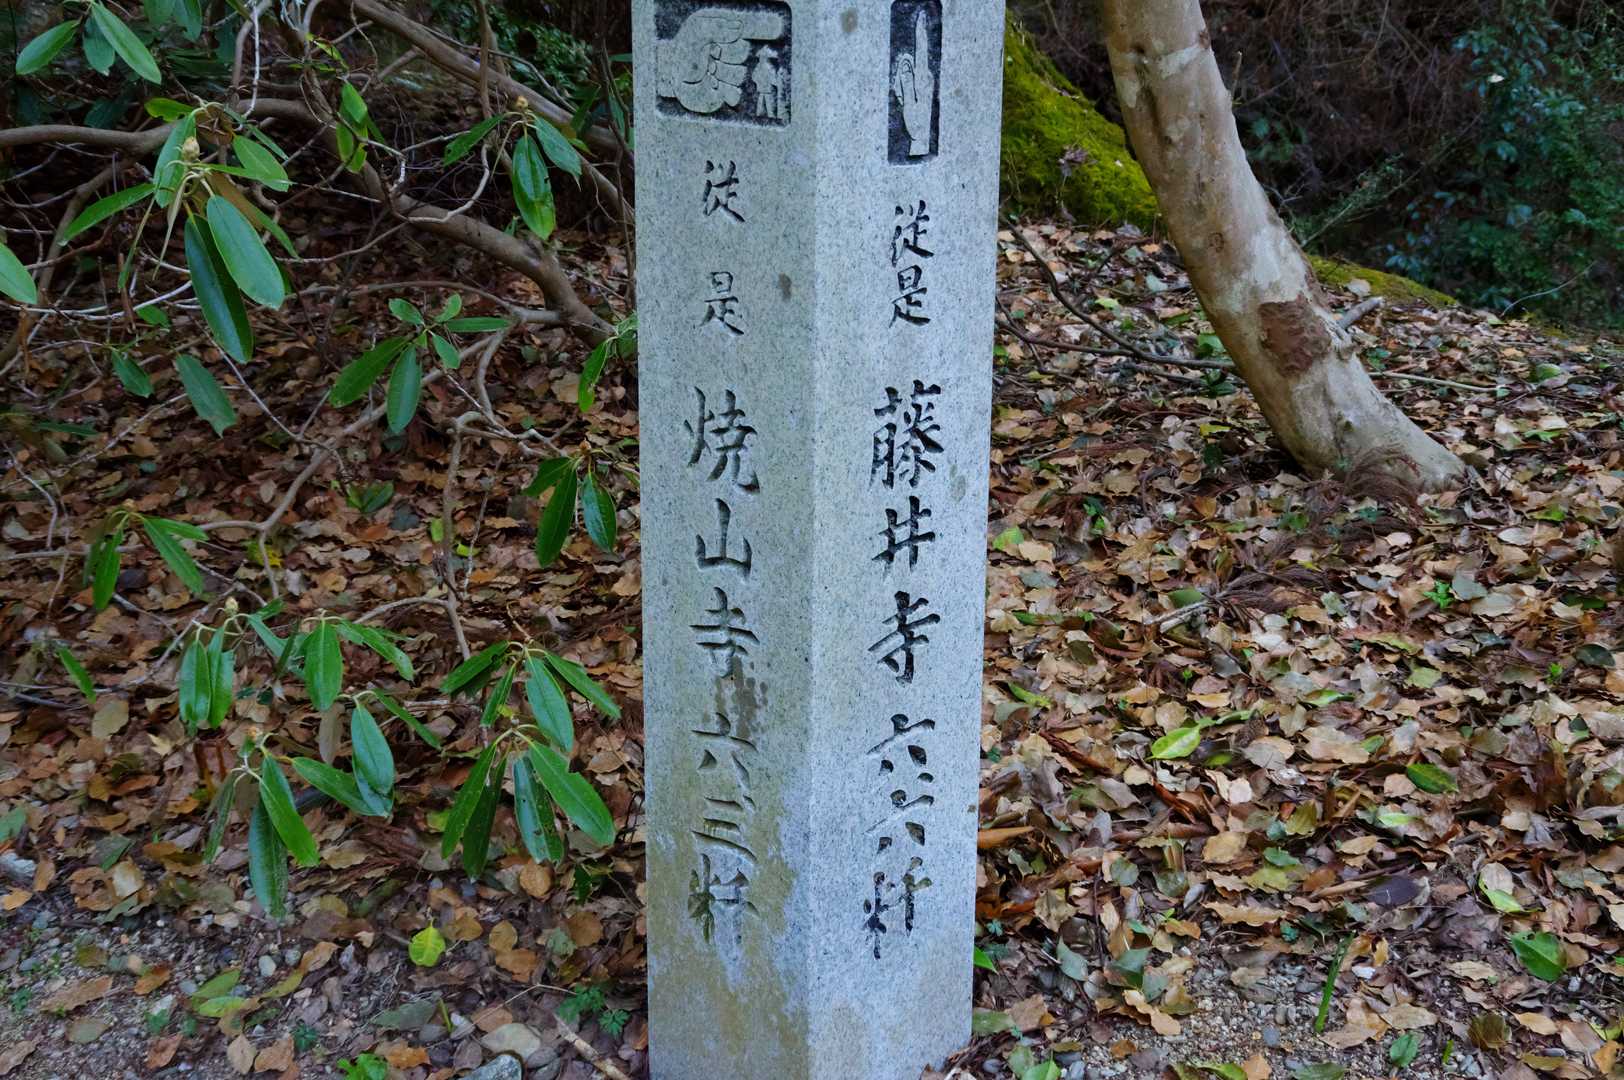 従是藤井寺六、六粁
従是焼山寺六、三粁